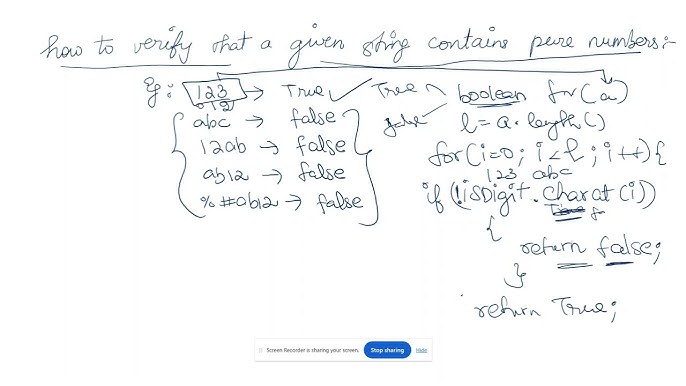 how to verify that a given sting contains pure numbers:-
Eg: 123 → True ✓
012
abc → false
12ab → false
ab12 → false
%#ab12 → false
True
false
boolean fn(a)
l = a.length()
for(i=0; i<l; i++){
123 abc
if(!isDigit.charat(i))
True fn
{
return false;
}
return True;
Screen Recorder is sharing your screen. Stop sharing Hide